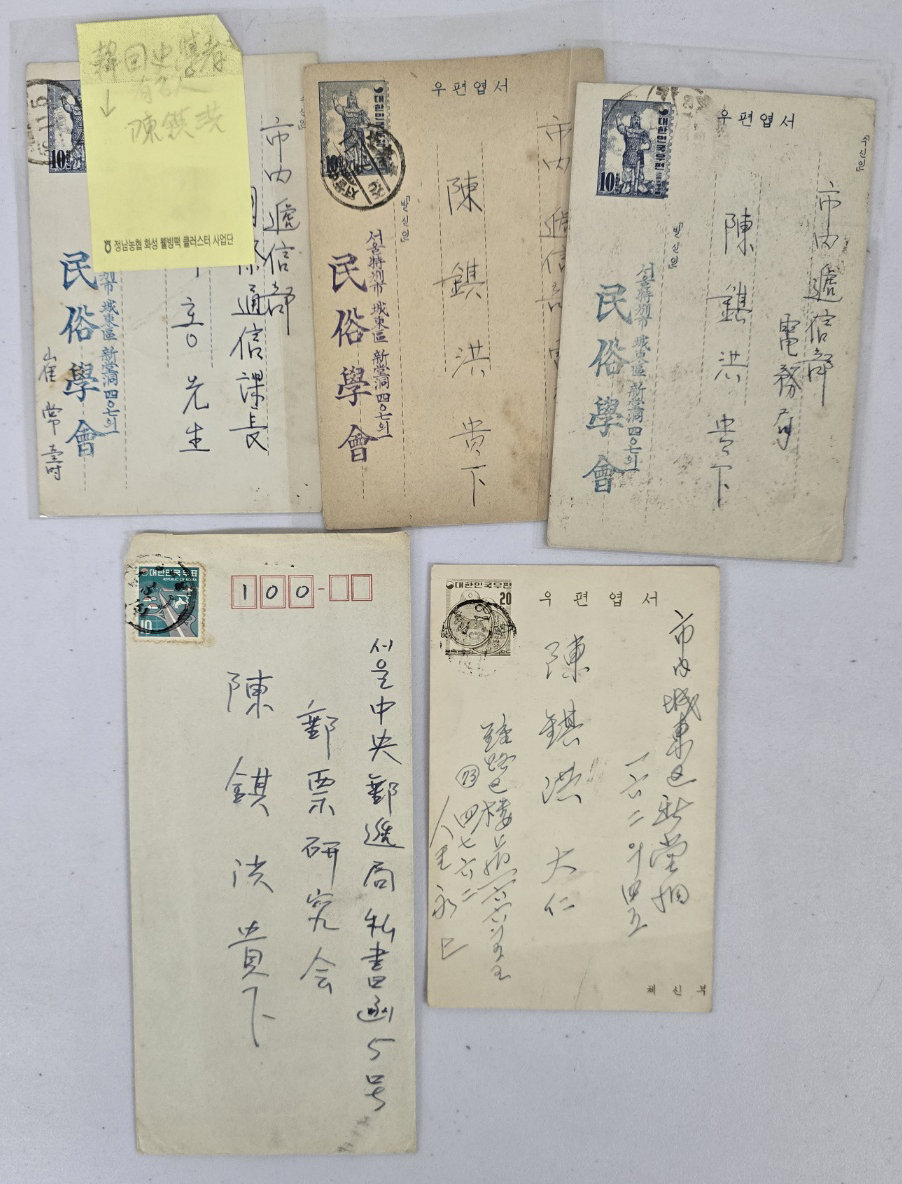 有名人
↓
陳錤洪
정남농협 화성 웰빙떡 클러스터 사업단
10
市內遞信部
通信課長
先生
民俗學會
城東區 新堂洞 四○七의一
崔常壽
우편엽서
대한민국우편
10
발신인
陳錤洪 貴下
서울特別市 城東區 新堂洞 四○七의一
民俗學會
우편엽서
대한민국우편
10
수신인
발신인
市內遞信部
電務局
陳錤洪 貴下
서울特別市 城東區 新堂洞 四○七의一
民俗學會
대한민국우표
REPUBLIC OF KOREA
10
100-
서울中央郵遞局 私書函 5号
郵票研究会
陳錤洪 貴下
대한민국우편
20
우편엽서
市內 城東区 新堂洞
一六二의四五
陳錤洪 大仁
체신부